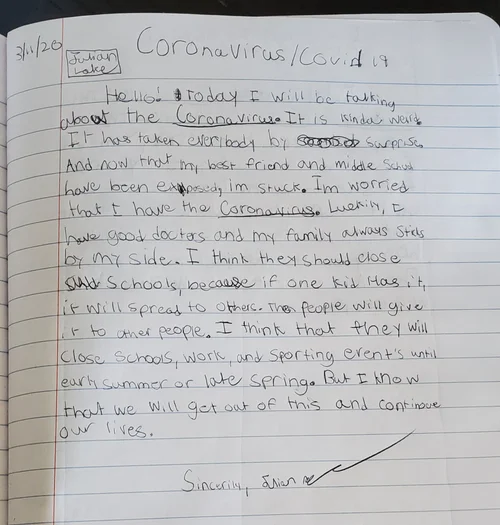 3/11/20
Julian Lake
Coronavirus/Covid 19
Hello! Today I will be talking
about the Coronavirus. It is kinda weird.
It has taken everybody by surprise.
And now that my best friend and middle School
have been exposed, im stuck. I'm worried
that I have the Coronavirus. Luckily, I
have good doctors and my family always Sticks
by my side. I think they should close
Schools, because if one kid Has it,
it will spread to others. Then people will give
it to other people. I think that they will
Close Schools, work, and sporting event's until
early summer or late spring. But I know
that we will get out of this and continue
our lives.
Sincerily, Julian